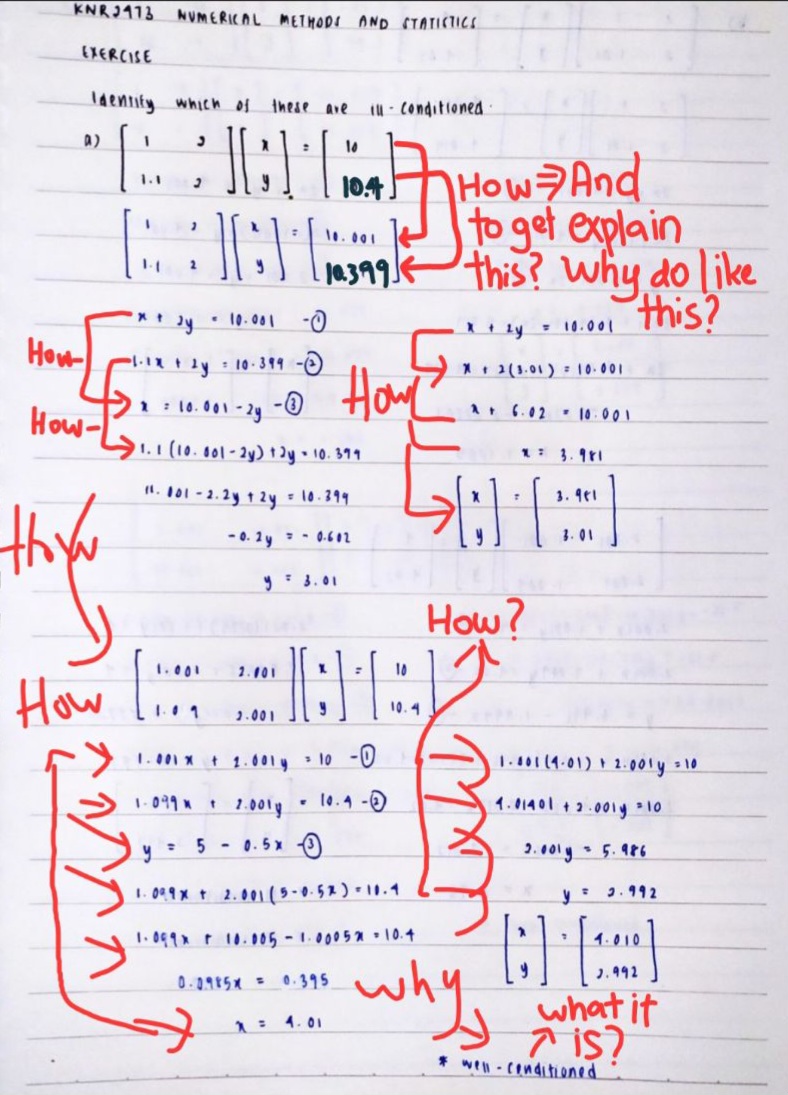 KNR2473 NUMERICAL METHODS AND STATISTICS
EXERCISE
Identify which of these are ill-conditioned.
a) [ 1 2 ; 1.1 2 ] [ x ; y ] = [ 10 ; 10.4 ]
How ⇒ And
to get explain
this? Why do like
this?
[ 1 2 ; 1.1 2 ] [ x ; y ] = [ 10.001 ; 10.399 ]
x + 2y = 10.001 -①
How
1.1x + 2y = 10.399 -②
x = 10.001 - 2y -③
How
1.1(10.001-2y)+2y = 10.399
11.001 - 2.2y + 2y = 10.399
-0.2y = -0.602
y = 3.01
x + 2y = 10.001
x + 2(3.01) = 10.001
How
x + 6.02 = 10.001
x = 3.981
[ x ; y ] = [ 3.981 ; 3.01 ]
How
How
[ 1.001 2.001 ; 1.09 2.001 ] [ x ; y ] = [ 10 ; 10.4 ]
1.001x + 2.001y = 10 -①
1.099x + 2.001y = 10.4 -②
y = 5 - 0.5x -③
1.099x + 2.001(5-0.5x) = 10.4
1.099x + 10.005 - 1.0005x = 10.4
0.0985x = 0.395
x = 4.01
How?
1.001(4.01) + 2.001y = 10
4.01401 + 2.001y = 10
2.001y = 5.986
y = 2.992
[ x ; y ] = [ 4.010 ; 2.992 ]
why
what it
is?
* well-conditioned